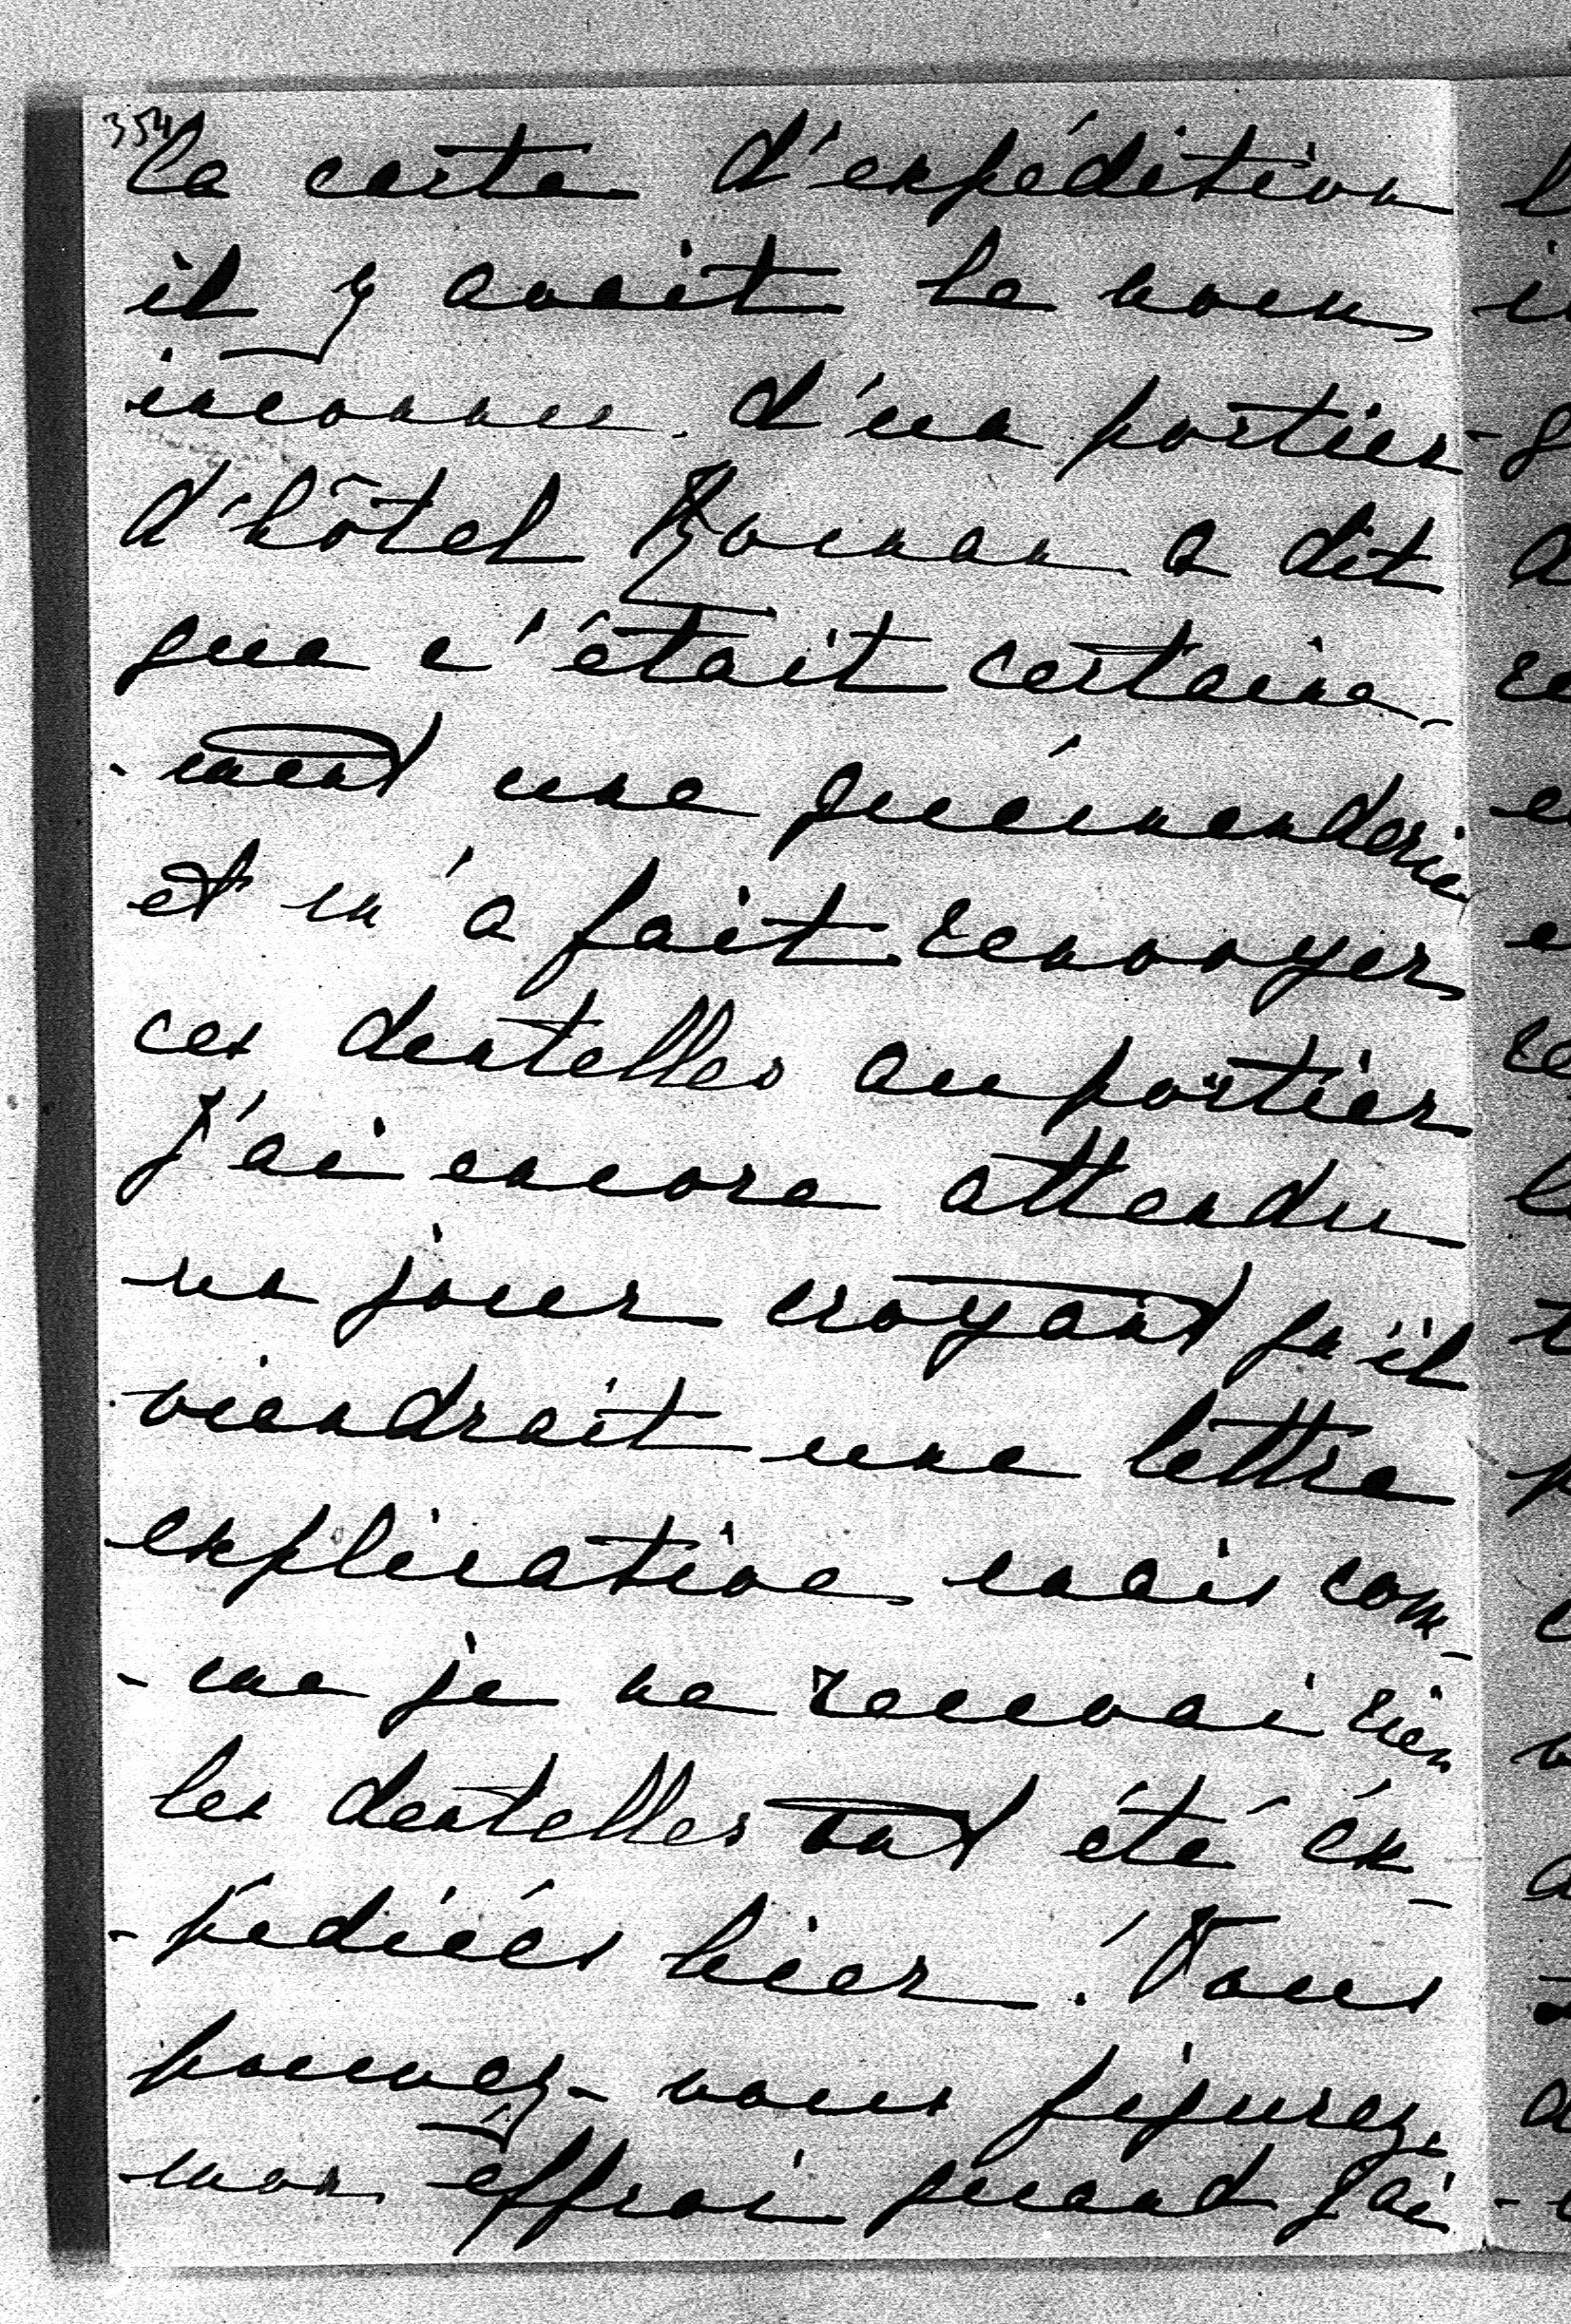 354
la carte d'expédition
il y avait le nom
inconnu d'un portier
d'hôtel a dit
que c'était certaine-
-ment une quémanderie
et m'a fait renvoyer
ces dentelles au portier
J'ai encore attendu
un jour croyant qu'il
viendrait une lettre
explicative mais com-
-me je ne recevai rien
les dentelles ont été éx-
-pédiéés hier! Vous
pouvez-vous figurez
mon éffroi quand j'ai